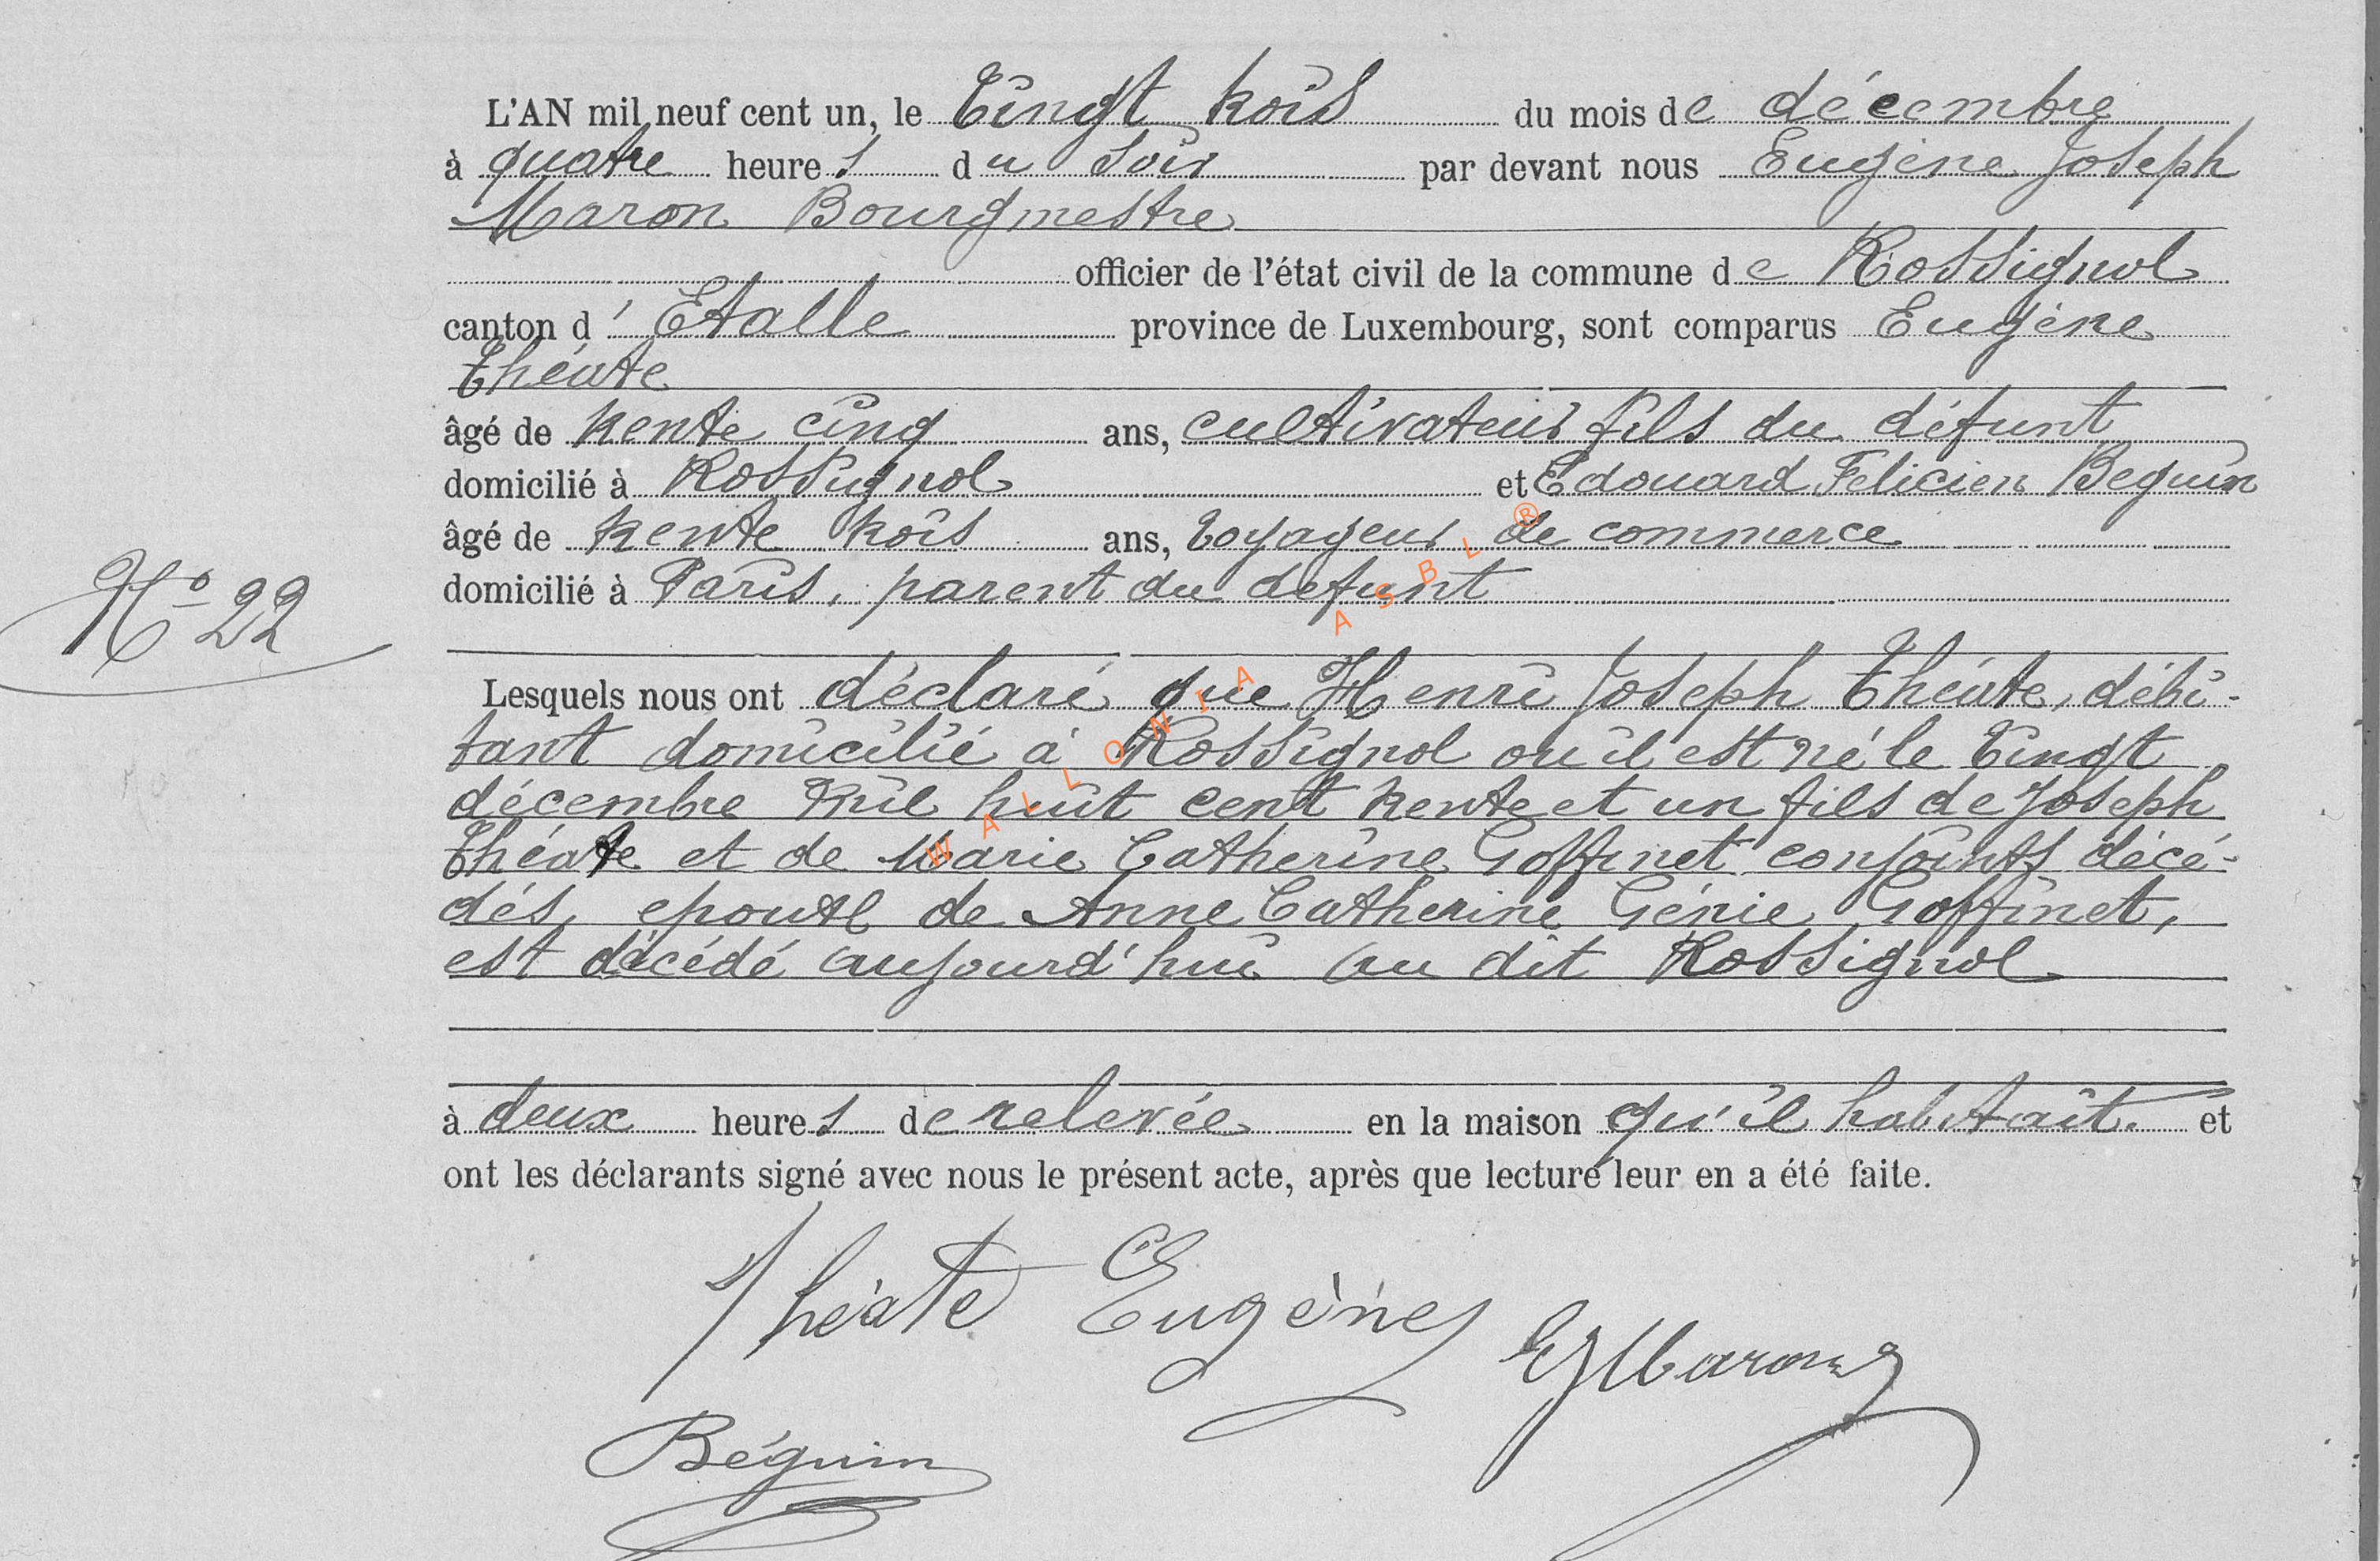 L'AN mil neuf cent un, le Vingt trois du mois de décembre
à quatre heures du Soir par devant nous Eugène Joseph
Maron Bourgmestre
officier de l'état civil de la commune de Rossignol
canton d'Etalle province de Luxembourg, sont comparus Eugène
Théate
âgé de trente cinq ans, cultivateur fils du défunt
domicilié à Rossignol et Edouard Felicien Beguin
âgé de trente trois ans, Voyageur de commerce
domicilié à Paris, parent du defunt
No 22
Lesquels nous ont déclaré que Henri Joseph Théate, débi-
tant domicilié à Rossignol où il est né le Vingt
décembre Mil huit cent trente et un fils de Joseph
Théate et de Marie Catherine Goffinet conjoints décé-
dés, epoux de Anne Catherine Génie Goffinet,
est décédé aujourd'hui au dit Rossignol
à deux heures de relevée en la maison qu'il habitait. et
ont les déclarants signé avec nous le présent acte, après que lecture leur en a été faite.
Théate Eugène
EJMaron
Béguin
WALLONIA ASBL ®